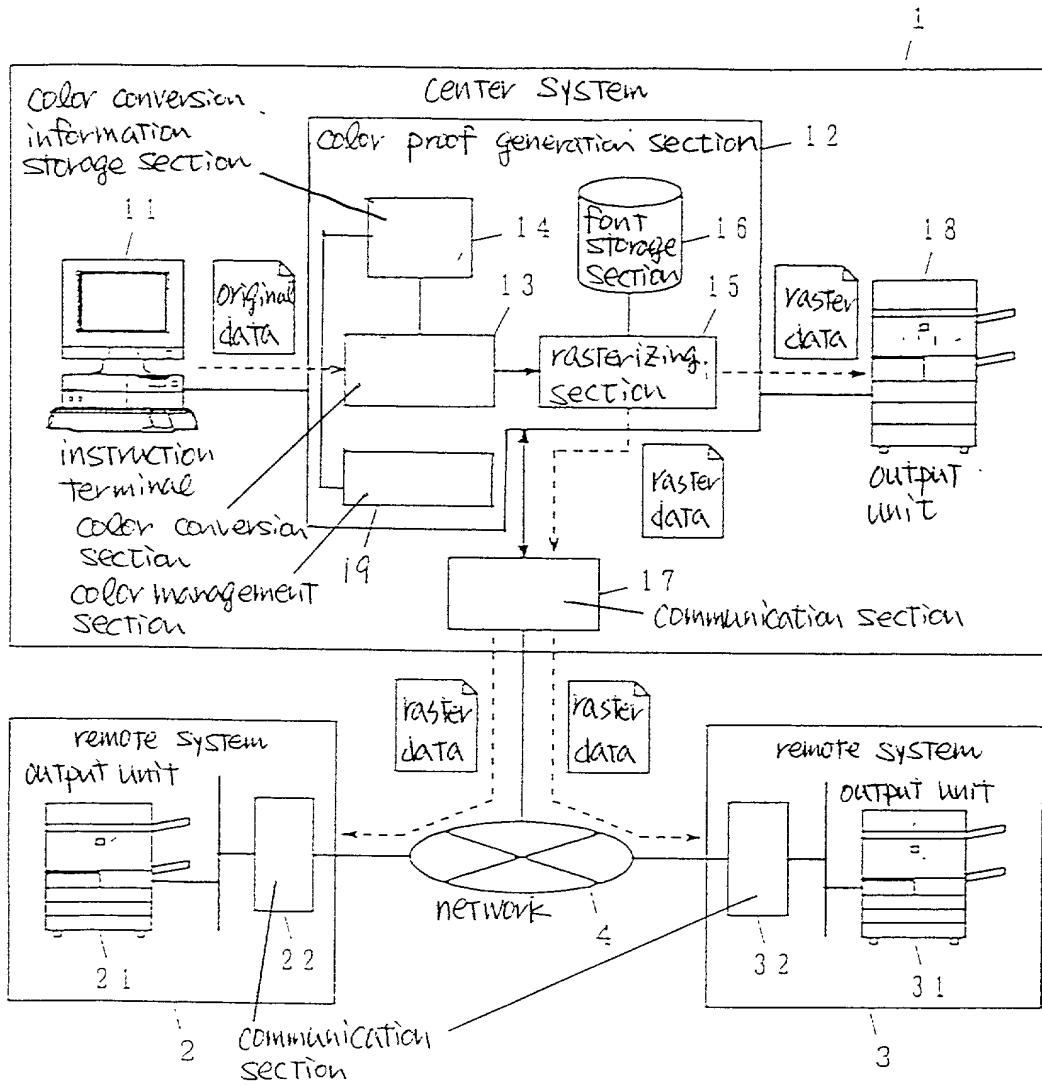 1
center system
color conversion
information
storage section
color proof generation section
12
11
original
data
14
font
storage
section
16
18
13
15
raster
data
rasterizing
section
instruction
terminal
color conversion
section
19
color management
section
raster
data
output
unit
17
communication section
raster
data
raster
data
remote system
output unit
remote system
output unit
network
4
21
22
32
31
2
communication
section
3